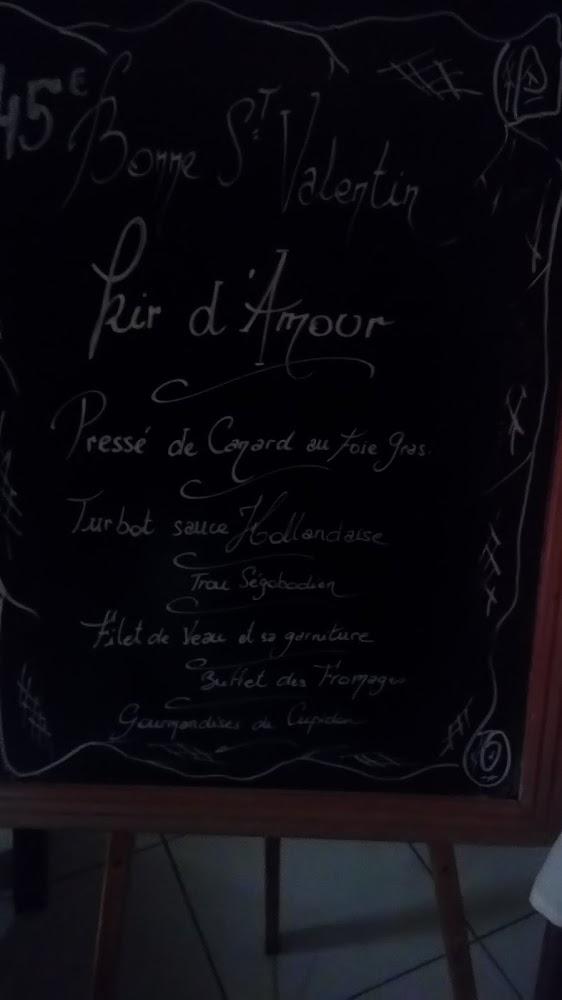 45€
Bonne St Valentin
Kir d'Amour
Pressé de Canard au Foie Gras.
Turbot sauce Hollandaise
Trou Ségobodien
Filet de Veau et sa garniture
Buffet des Fromages
Gourmandises de Cupidon